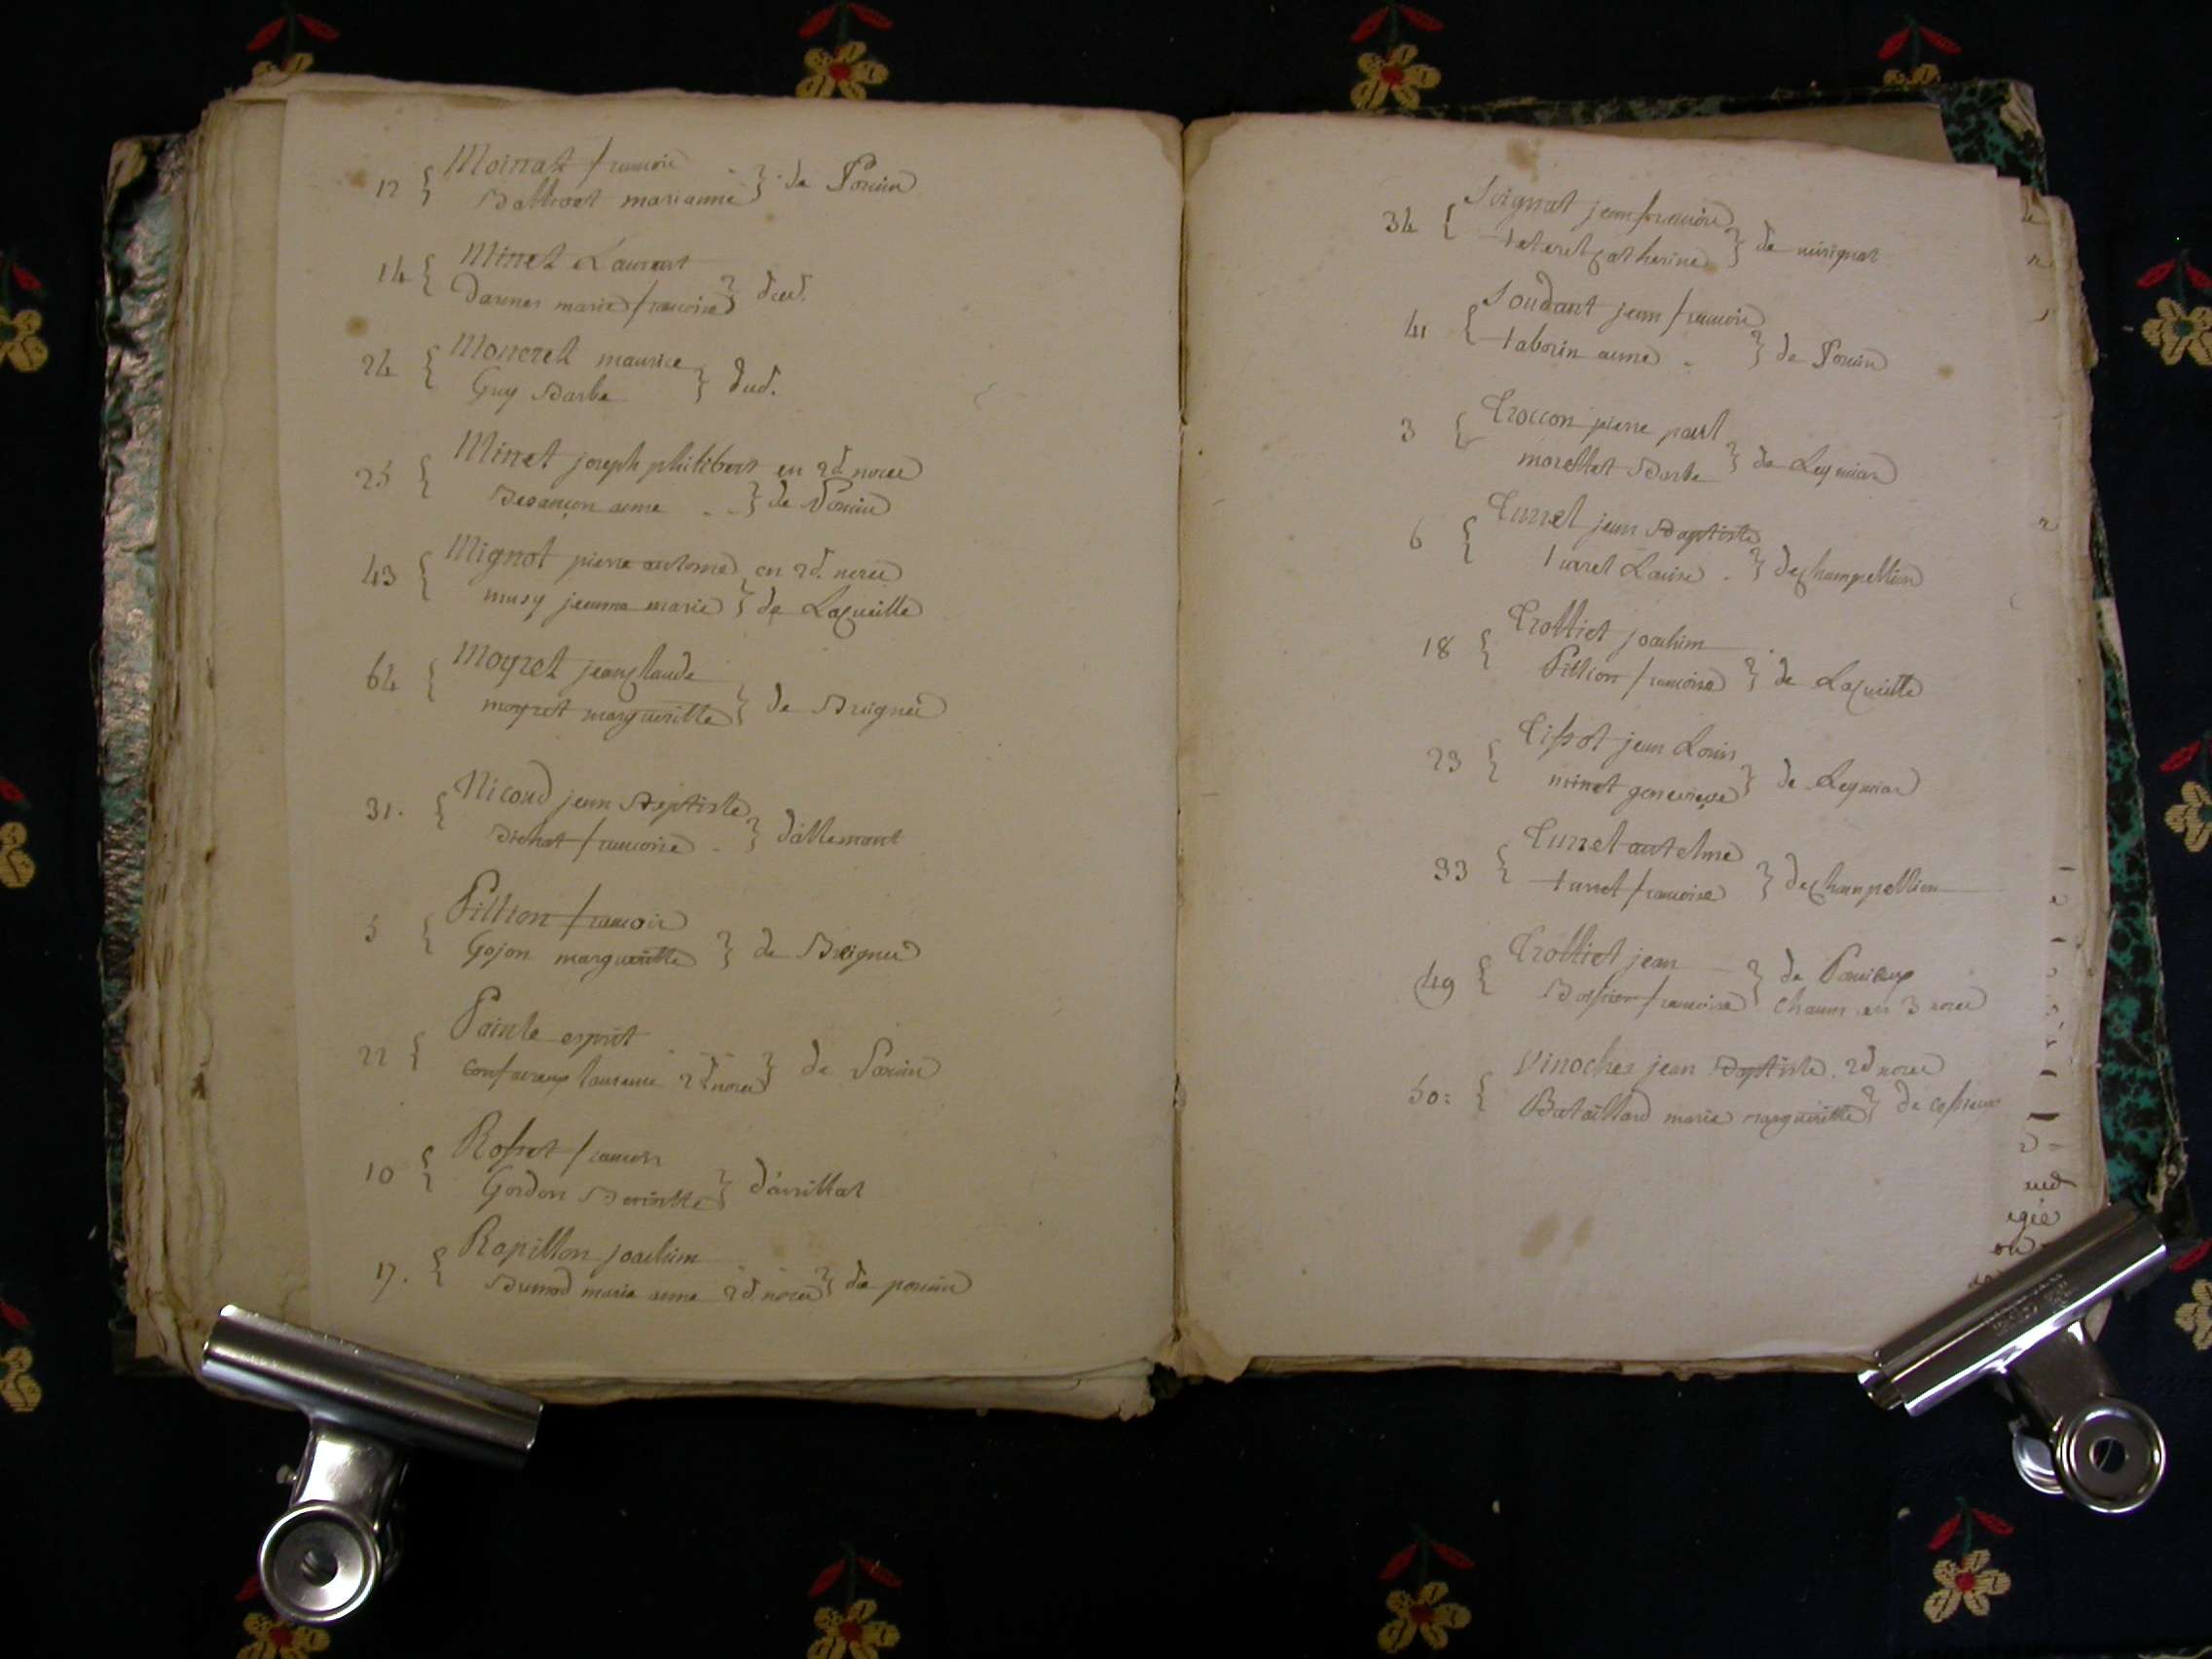 12 { Moinat francois
Ballivet marianne } de Poncin
14 { Minet Laurent
Dannes marie francoise } dud.
24 { Moncret maurice
Guy Barbe } dud.
25 { Minet joseph philibert en 2d. noces
Besançon anne } de Poncin
43 { Mignot pierre antoine en 2d. noces
musy jeanne marie } de La Cueille
64 { Moyret jean Claude
moyret margueritte } de Breignes
31. { Nicoud jean Baptiste
Bichat francoise } d'allemant
5 { Pillion francois
Gojon margueritte } de Breignes
22 { Painte esprit
laurence 2d noces } de Poncin
10 { Rosset francois
Gordon } d'avrillat
17. { Rapillon joachim
Brunod marie anne 2d. noces } de poncin
34 { Soignat jean francois
teteret Catherine } de mérignat
41 { Soudant jean francois
taborin anne } de Poncin
3 { Troccon pierre paul
morellet Barbe } de Leymiat
6 { Turrel jean Baptiste
turrel Louise } de Champellion
18 { Trolliet joachim
Pillion francoise } de La Cueille
23 { Tissot jean Louis
minet genevieve } de Leymiat
33 { Turrel antelme
turrel francoise } de Champellion
49 { Trolliet jean } de
francoise en 3 noces
50: { Vinochet jean Baptiste. 2d noces
Bataillard marie margueritte } de